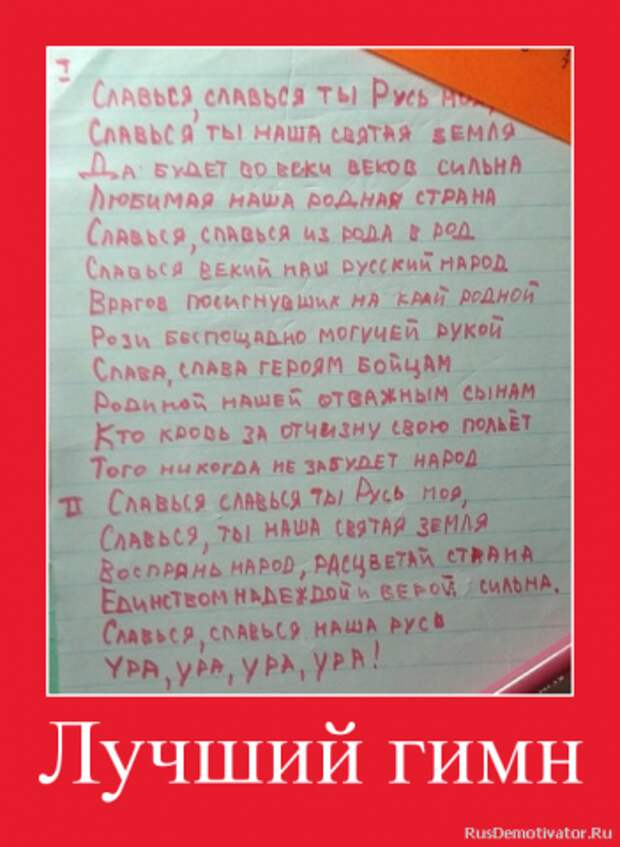 I
Славься, славься ты Русь моя,
Славься ты наша святая земля
Да будет во веки веков сильна
Любимая наша родная страна
Славься, славься из рода в род
Славься векий наш русский народ
Врагов посигнувших на край родной
Рози беспощадно могучей рукой
Слава, слава героям бойцам
Родиной нашей отважным сынам
Кто кровь за отчизну свою польёт
Того никогда не забудет народ
II Славься славься ты Русь моя,
Славься, ты наша святая земля
Воспрянь народ, расцветай страна
Единством надеждой и верой сильна.
Славься, славься наша русь
Ура, ура, ура, ура!
Лучший гимн
RusDemotivator.Ru